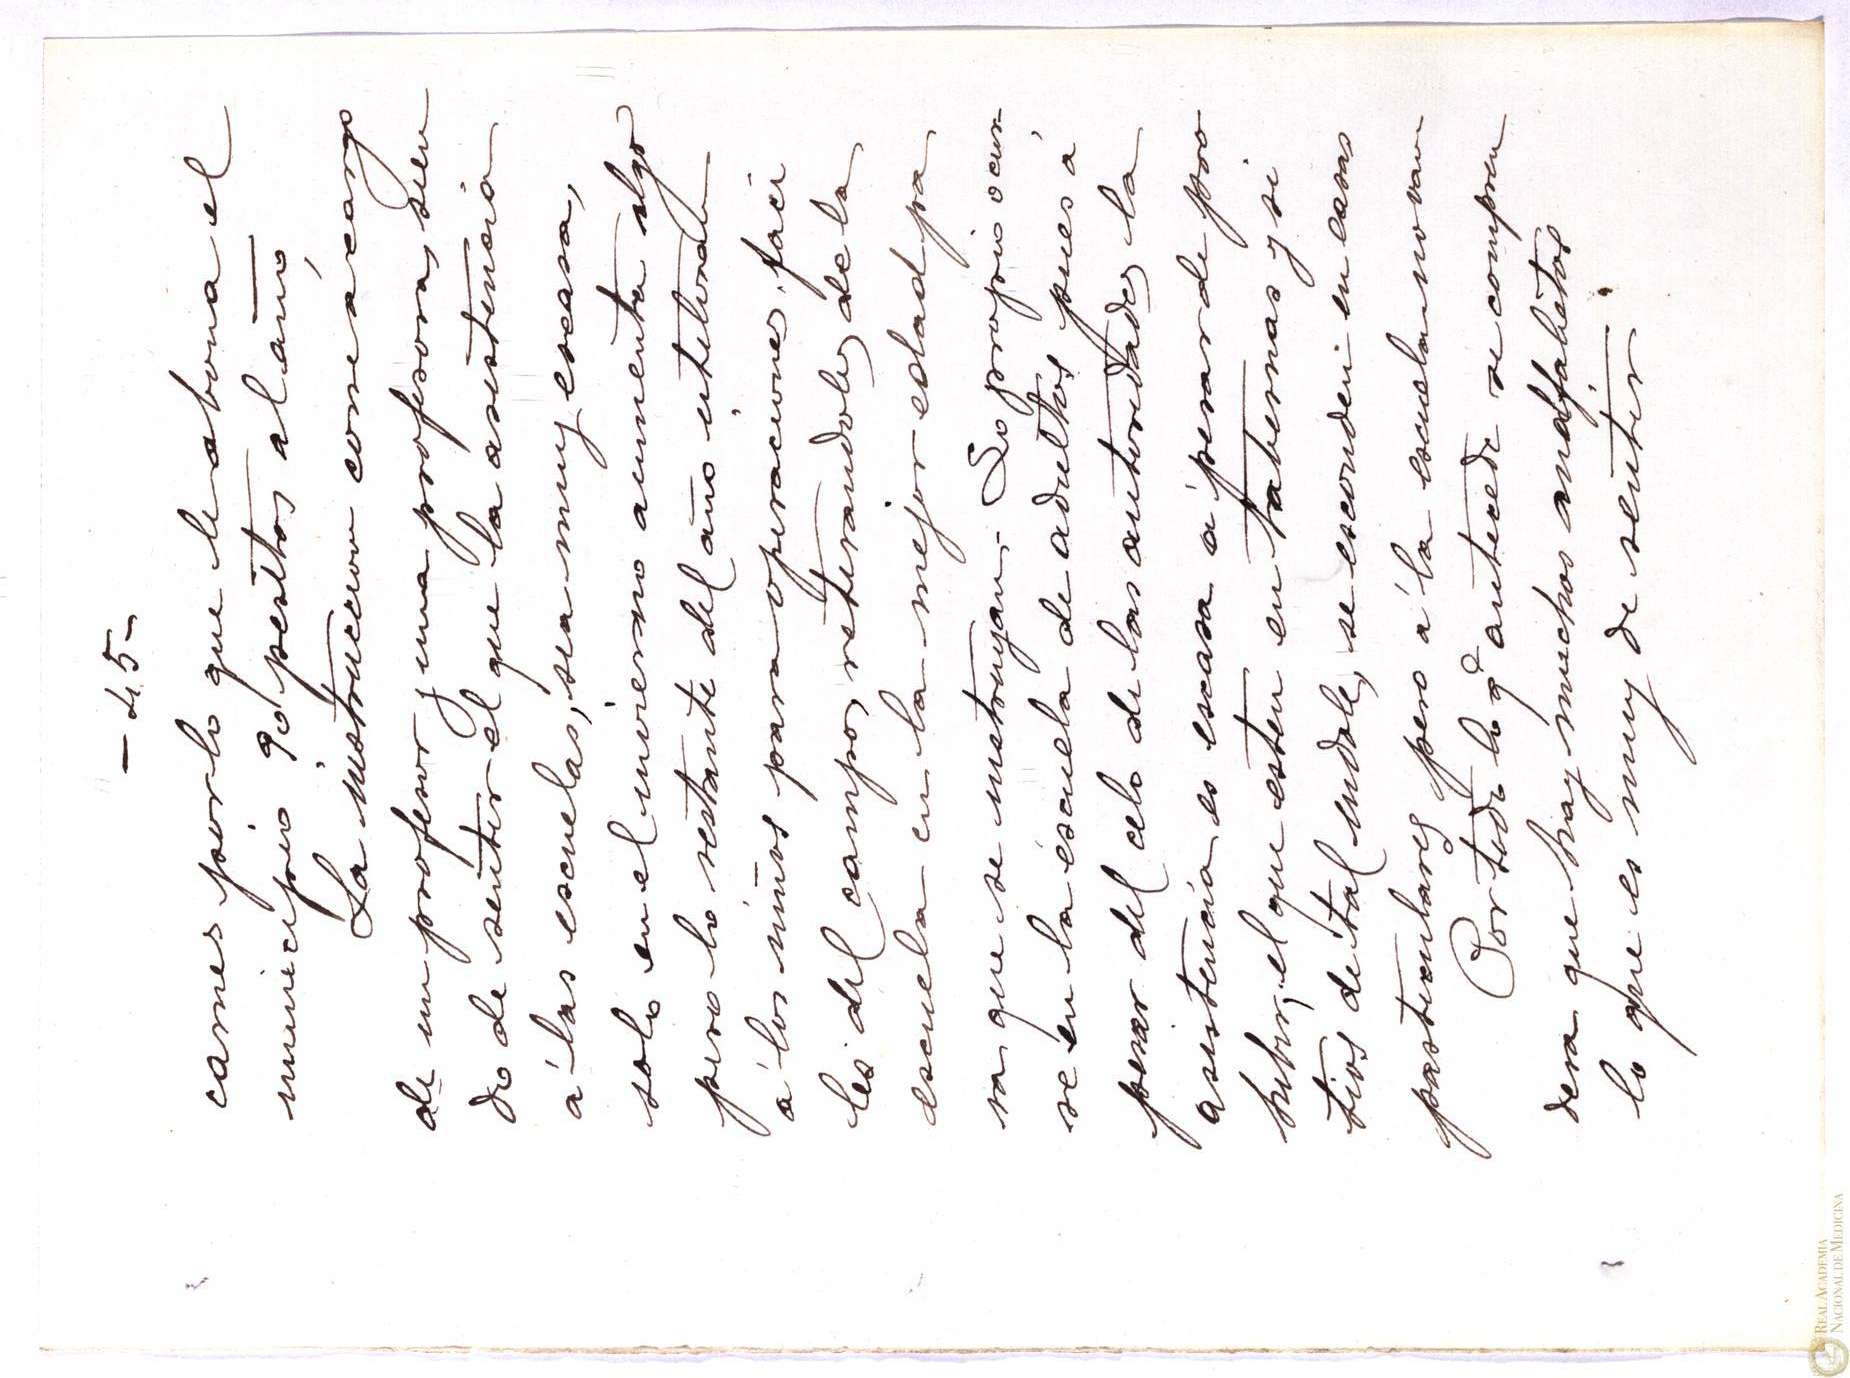 - 45 -
carnes por lo que le abona el
municipio 90 pesetas al año
La instruccion corre a cargo
de un profesor y una profesora, sien
do de sentir el que la asistencia
á las escuelas, sea muy escasa,
solo en el invierno aumenta algo
pero lo restante del año utilizan
á los niños para operaciones faci
les del campo, retirandoles de la
escuela en la mejor edad pa
ra que se instruyan.- Lo propio ocur
re en la escuela de adultos pues á
pesar del celo de las autoridades la
asistencia es escasa á pesar de pro
hibir, el que esten en tabernas y si
tios de tal indole, se esconden en casas
particulares pero á la escuela no van
Por todo lo qe antecede se compren
dera que hay muchos analfabetos
lo que es muy de sentir.
REAL ACADEMIA
NACIONAL DE MEDICINA